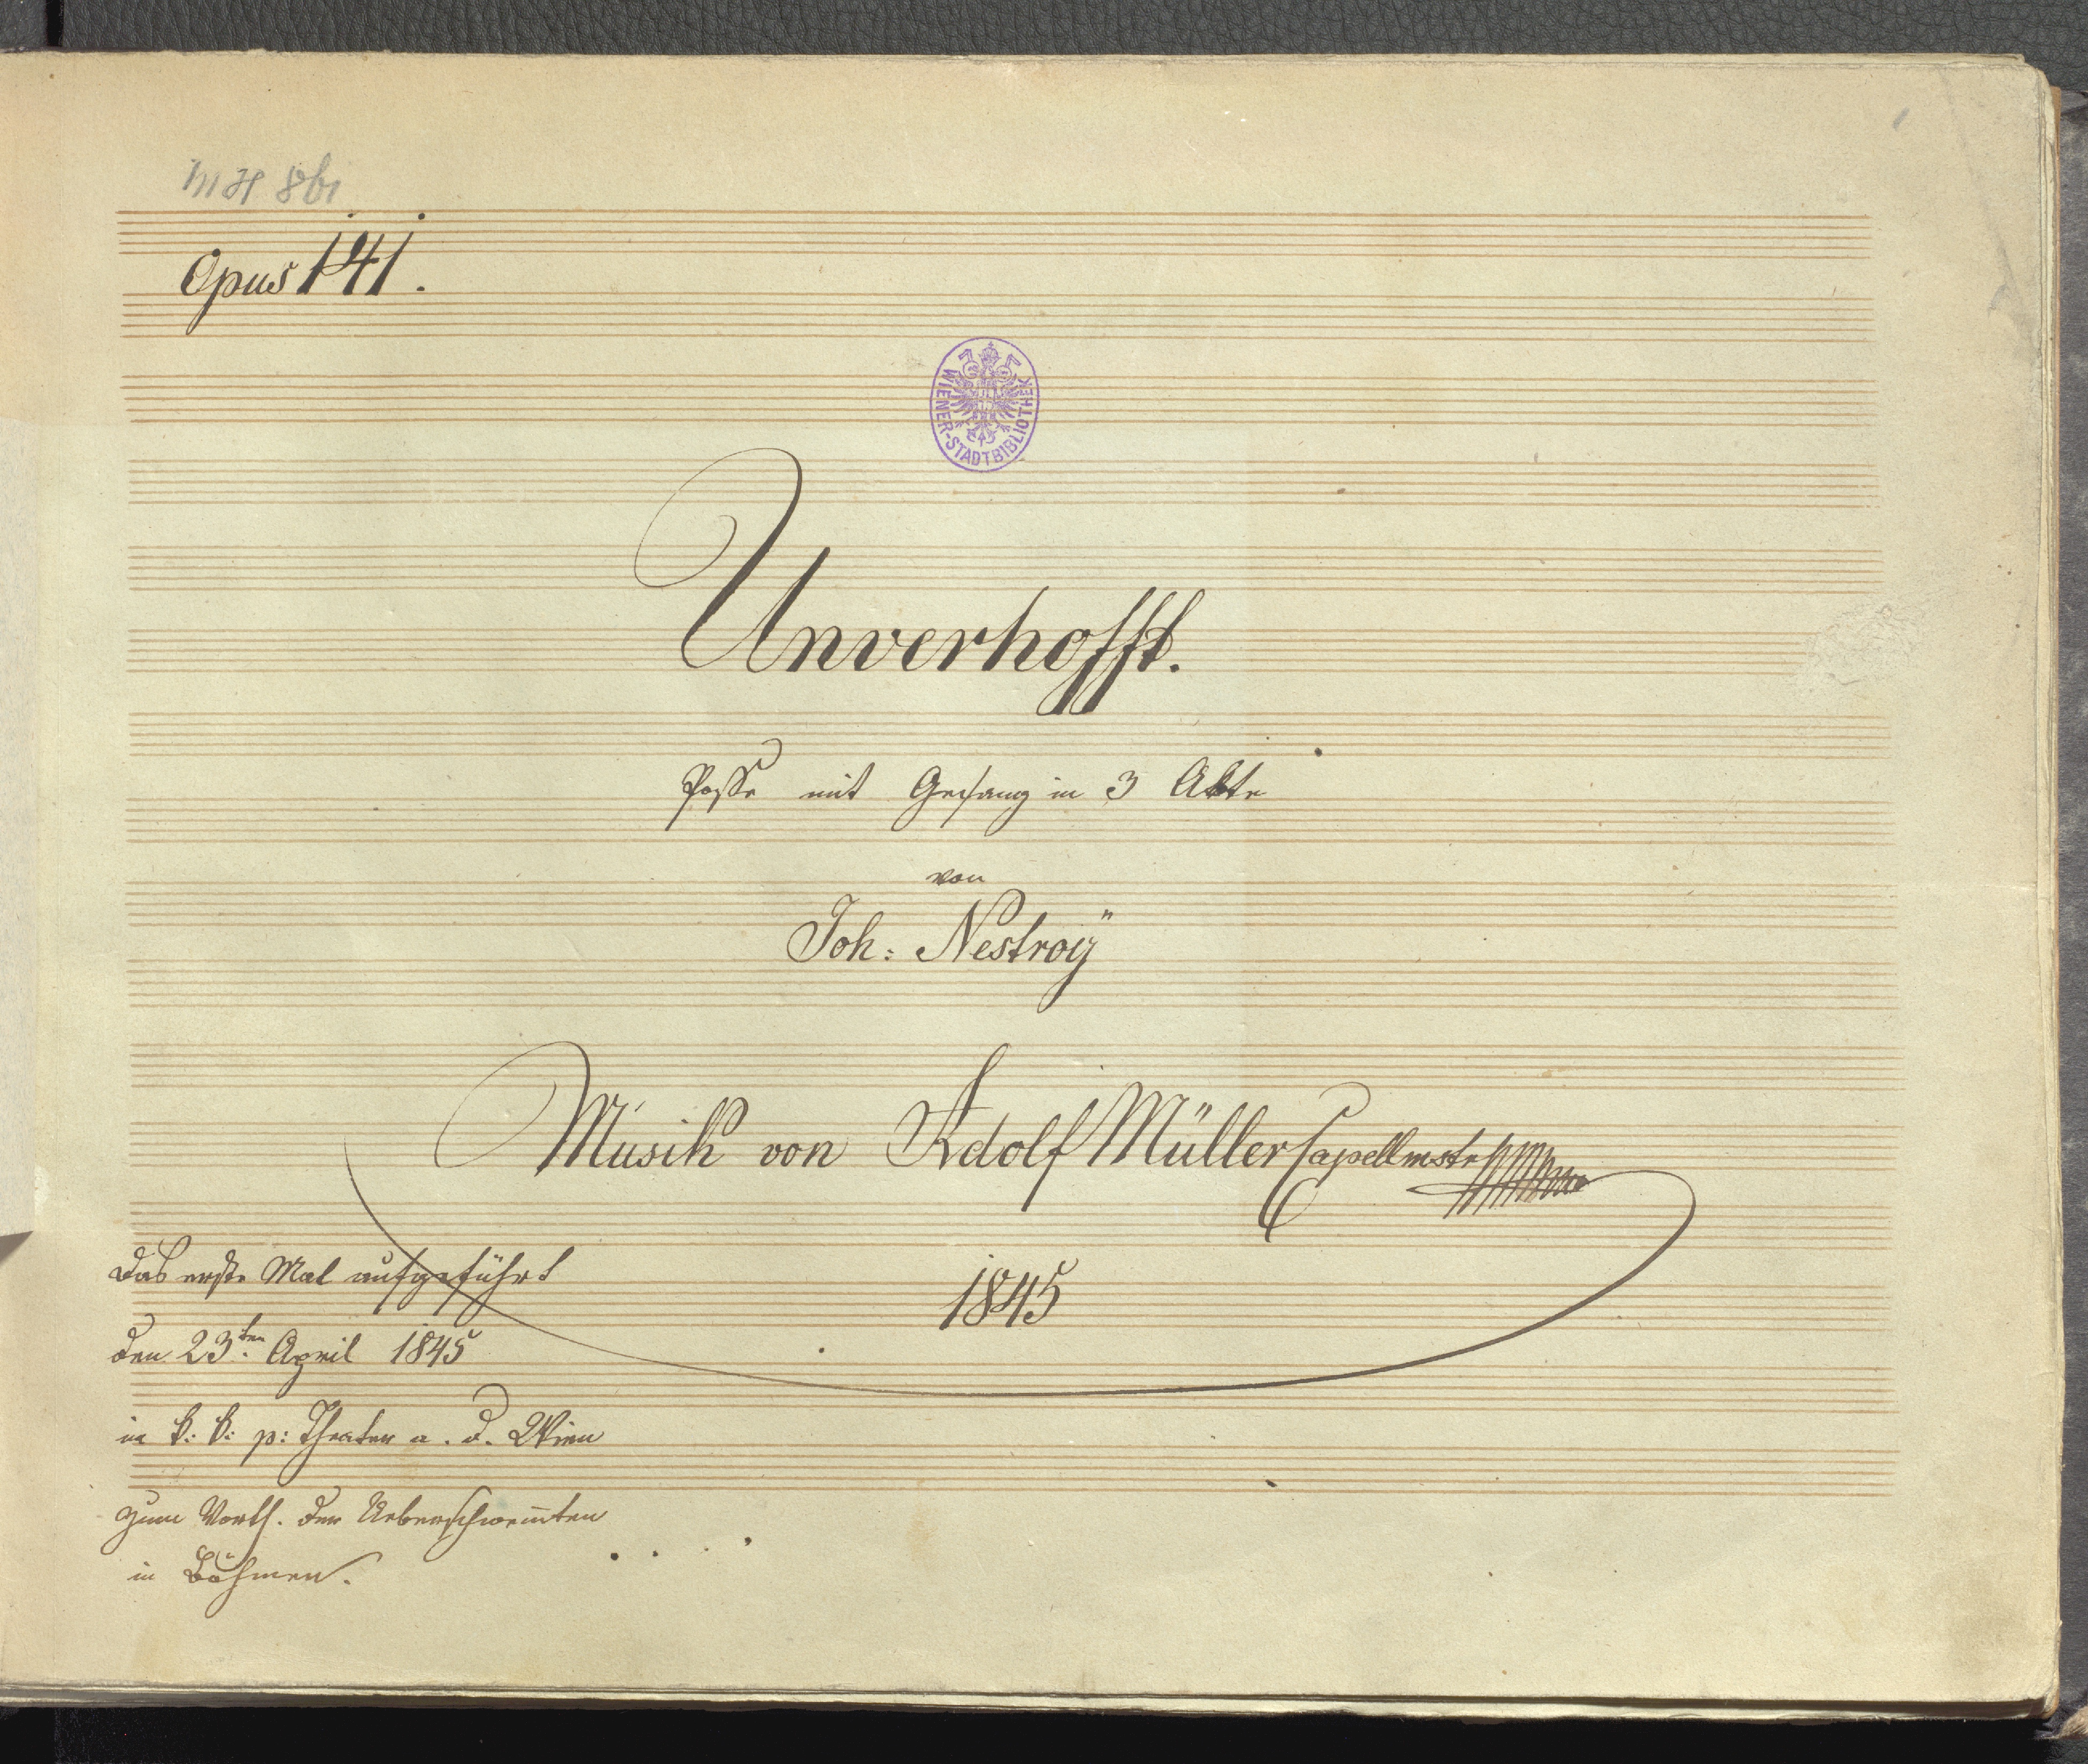 MH 861
Opus 141.
WIENER-STADTBIBLIOTHEK
Unverhofft.
Posse mit Gesang in 3 Akte
von
Joh: Nestroÿ
Musik von Adolf Müller Capellmstr
1845
Das erste Mal aufgeführt
den 23ten April 1845
in k: k: p: Theater a. d. Wien
zum Vorth. der Ueberschwem̅ten
in Böhmen.